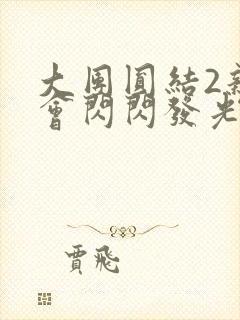 大團圓結2
會閃閃發光
賈飛